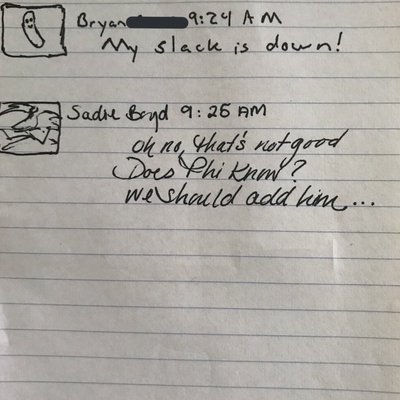 Bryan 9:24 AM
My slack is down!
Sadie Boyd 9:25 AM
oh no, that's not good
Does Phi know?
we should add him...